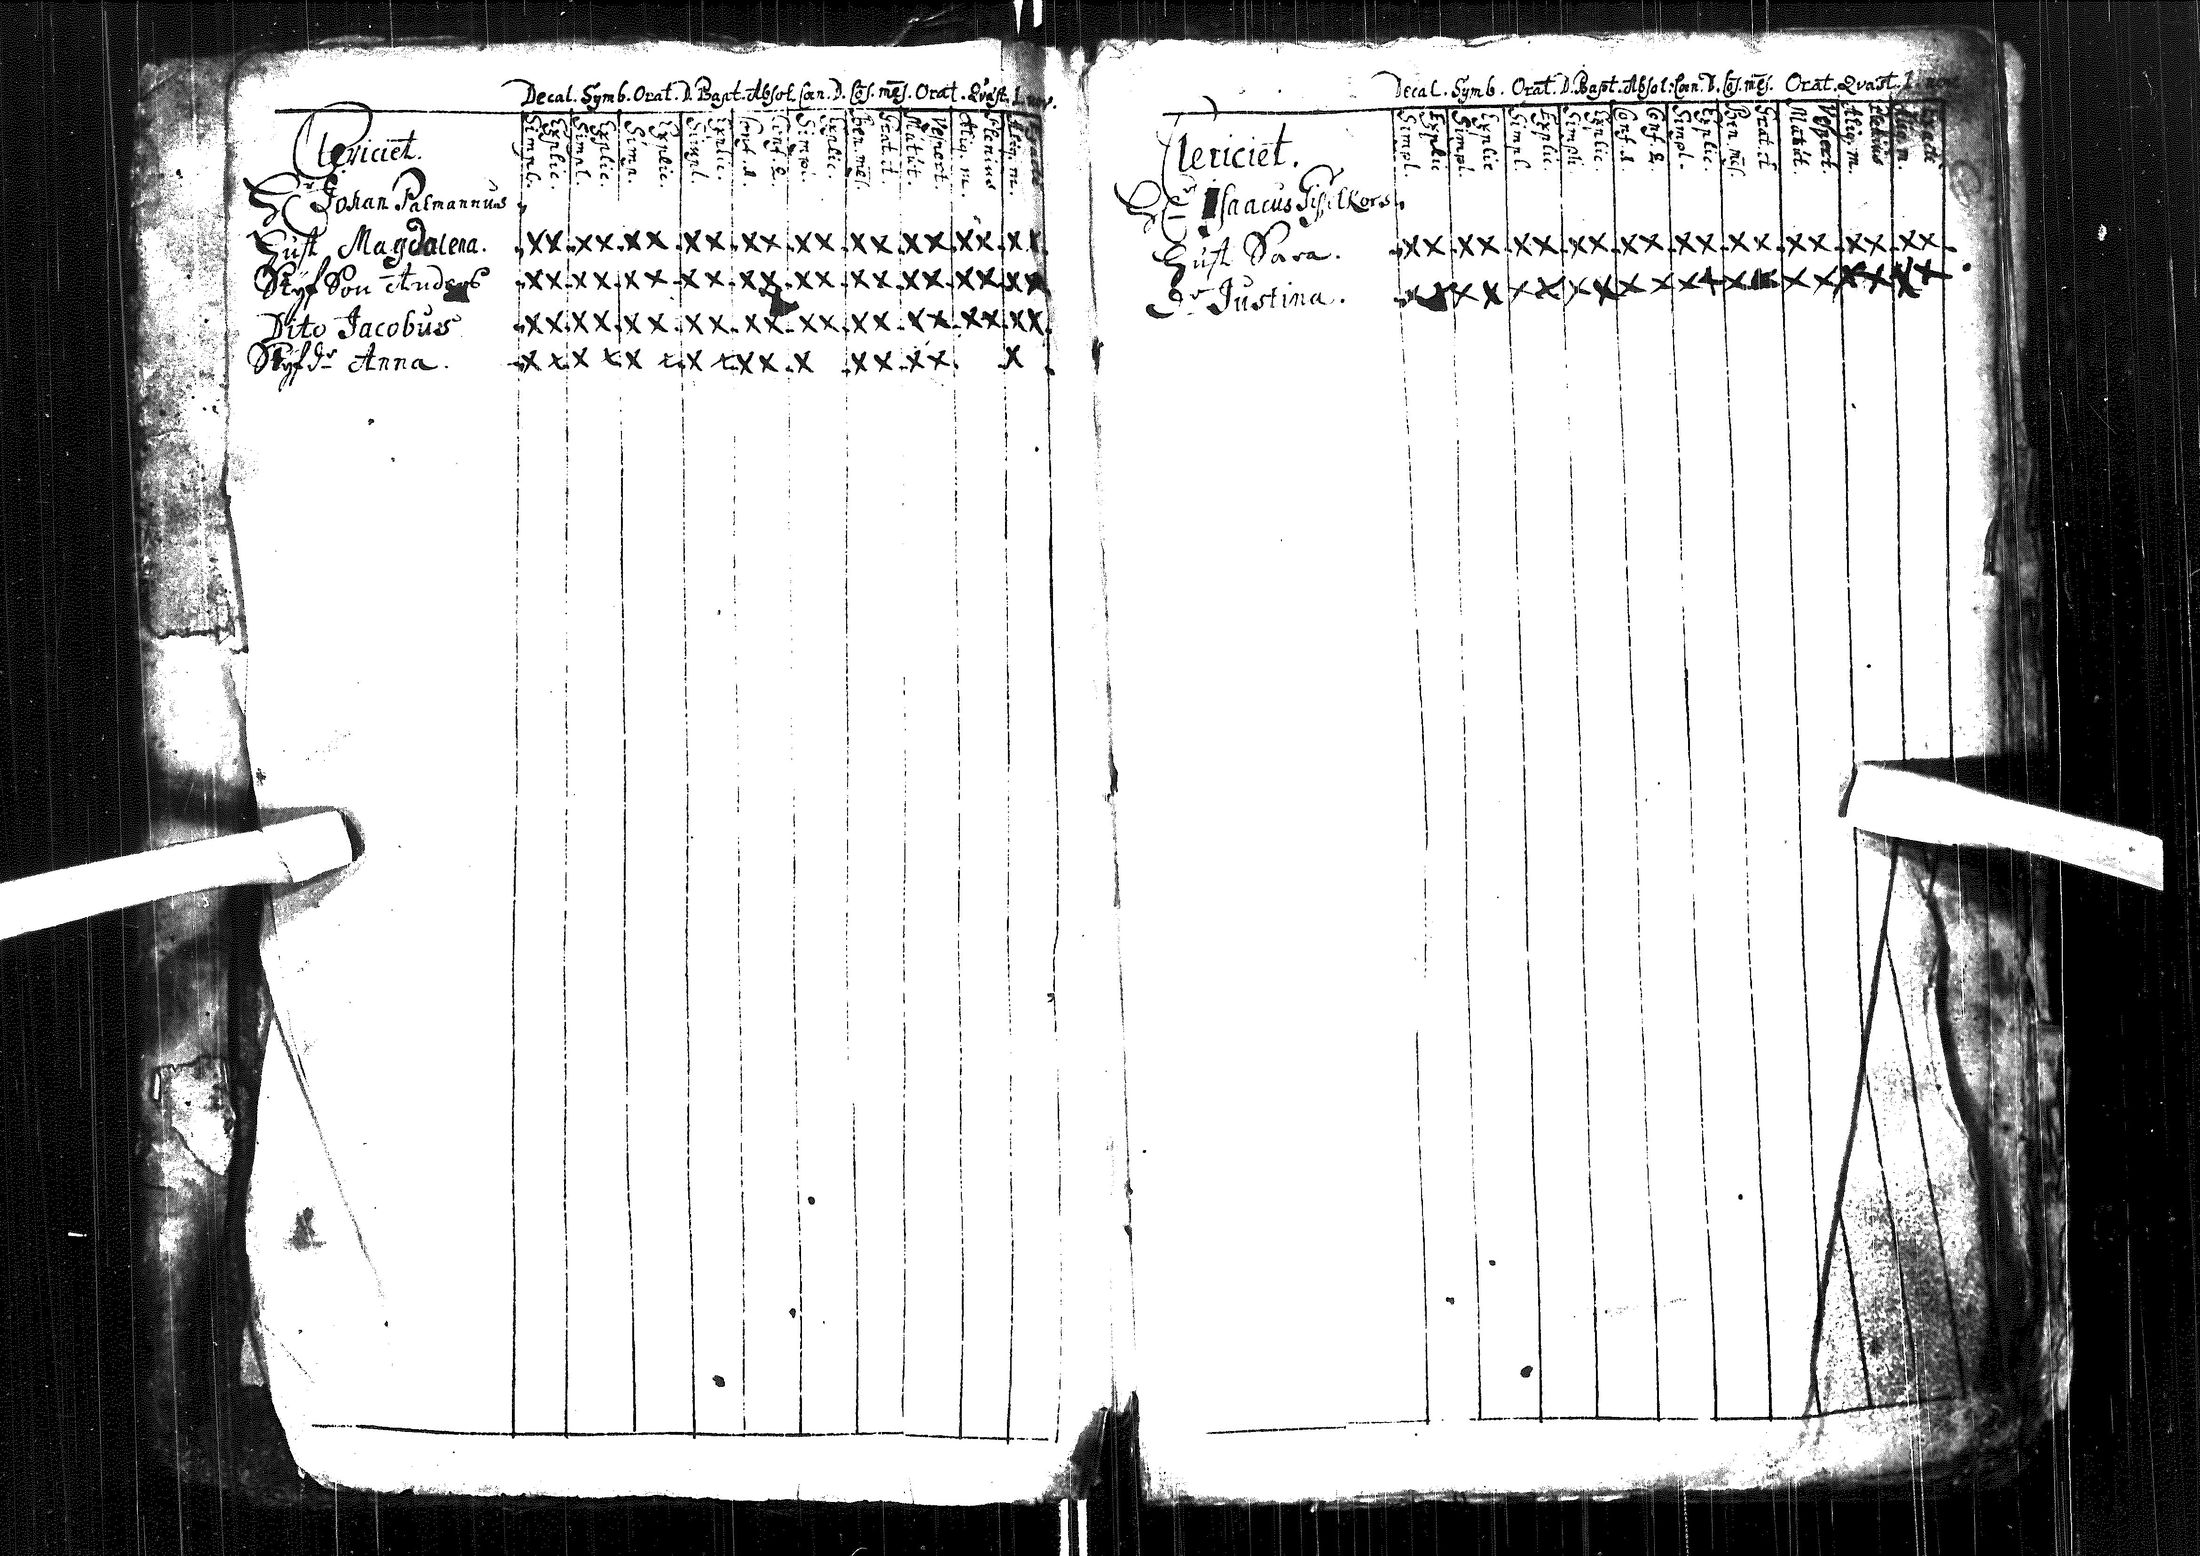 Decal. Symb. Orat. D. Bapt. Absol. Cœn. D. Ben. mēs. Orat. Qvæst.
Simpl. Explic. Simpl. Explic. Simpl. Explic. Simpl. Explic. Conf. 1. Conf. 2. Simpl. Explic. Ben. mēs. Grat. it. Matut. Vespert. Aliq. m. Plenius Aliq. m.
Clericiet.
Hr Johan Palmannus
Hust Magdalena. x x x x x x x x x x x x x x x x x x x x
Styf Son Anders x x x x x x x x x x x x x x x x x x x x
Dito Jacobus x x x x x x x x x x x x x x x x x x x x
Styf dr Anna. x x x x x x x x x x x x x x x x
Decal. Symb. Orat. D. Bapt. Absol. Cœn. D. Ben. mēs. Orat. Qvæst.
Simpl. Explic Simpl. Explic Simpl. Explic Simpl. Explic. Conf. 1. Conf. 2. Simpl. Explic. Ben. mēs. Grat. it Matut. Vespert. Aliq. m. Plenius Aliq. m. Exacte
Clericiet.
Hr Isaacus
Hust Sara. x x x x x x x x x x x x x x x x x x x x
dr Justina. x x x x x x x x x x x x x x x x x x